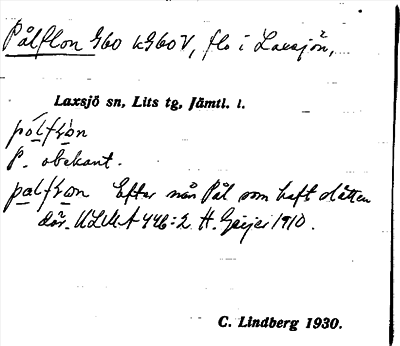 Pålflon 960 k960V, flo i Laxsjön,
Laxsjö sn, Lits tg, Jämtl. l.
P. obekant.
Efter nån Pål som haft slåtten
där. ULMA 446:2 H. Geijer 1910.
C. Lindberg 1930.